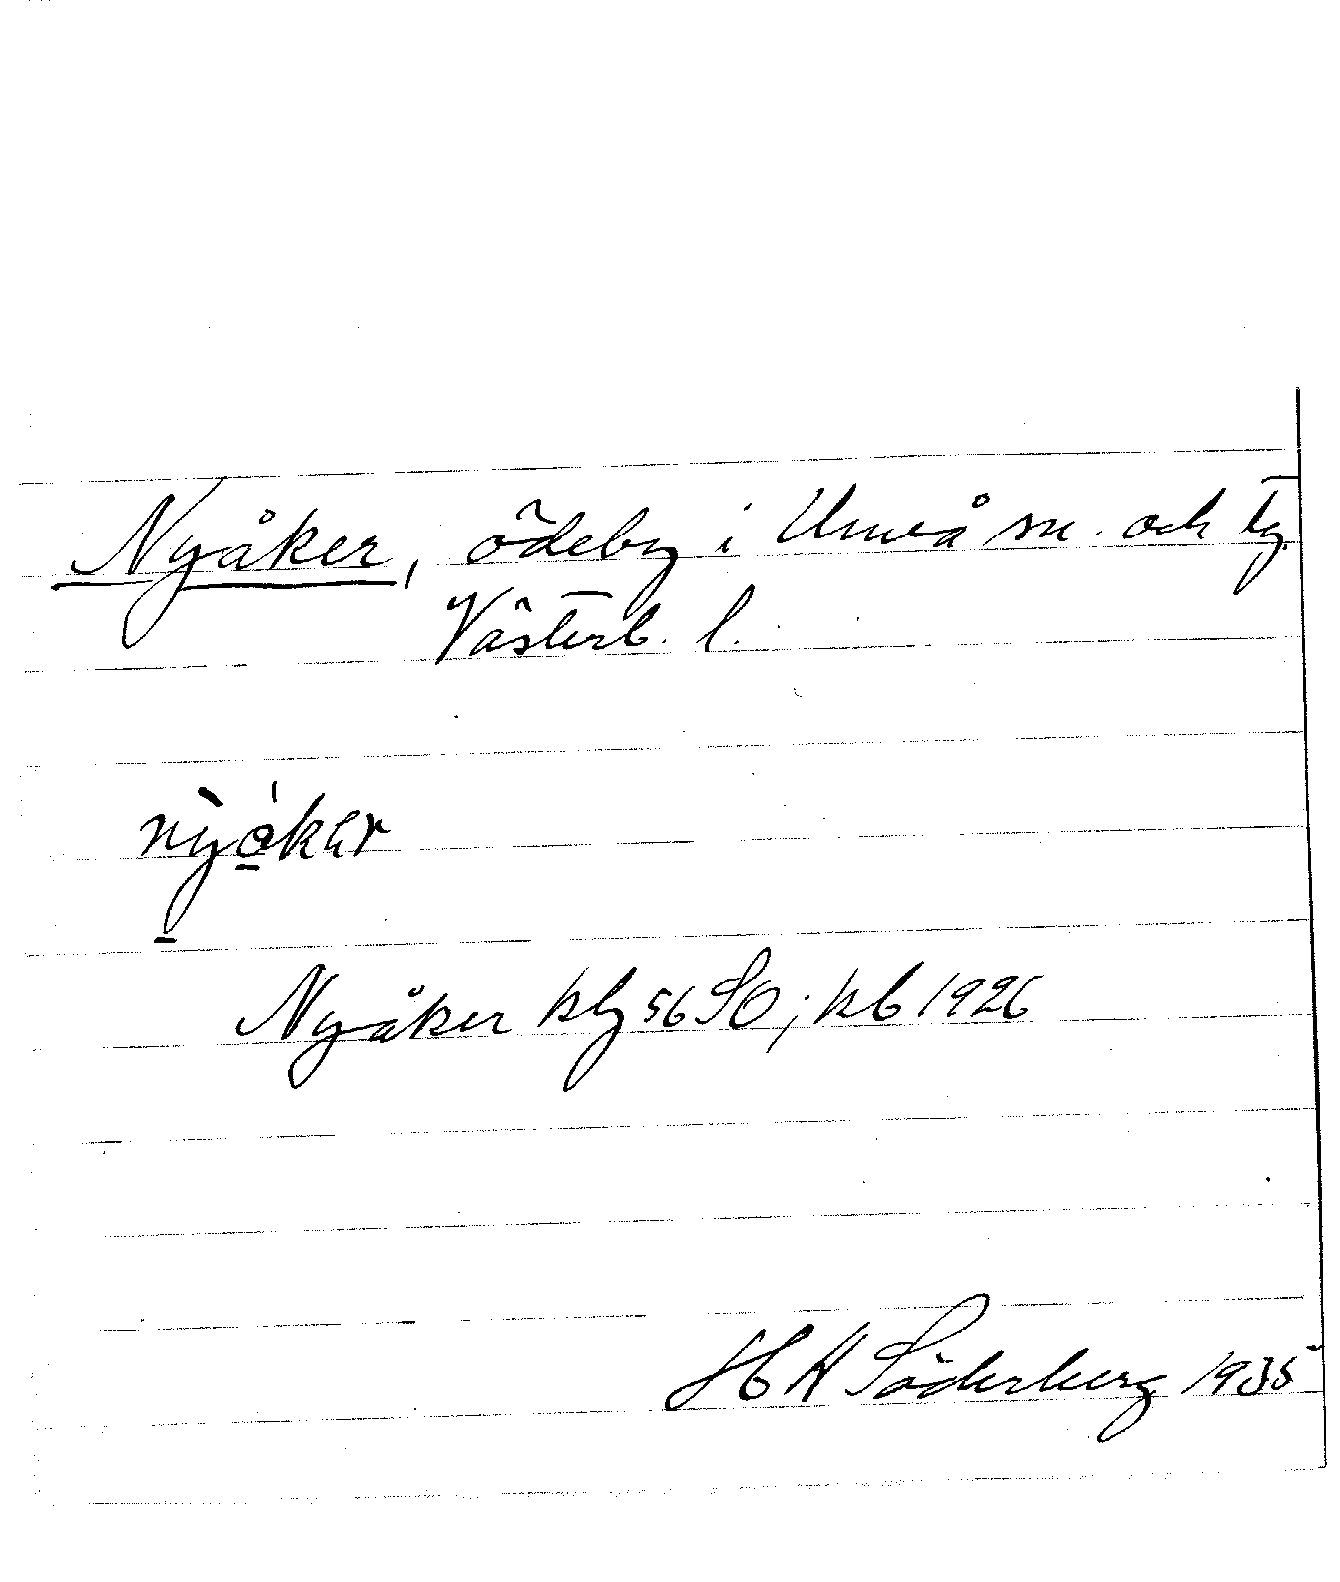 Nyåker, ödeby i Umeå sn. och tg.
Västerb. l.
nỳåkær
Nyåker kby 56 SO; kb 1926
H A Söderberg 1935